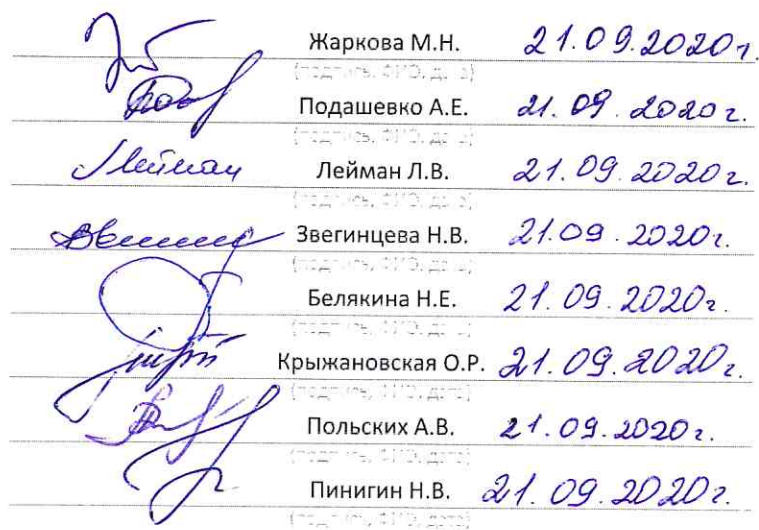 Жаркова М.Н. 21.09.2020г.
(подпись, ФИО, дата)
Подашевко А.Е. 21.09.2020г.
(подпись, ФИО, дата)
Лейман Лейман Л.В. 21.09.2020г.
(подпись, ФИО, дата)
Звегинцева Н.В. 21.09.2020г.
(подпись, ФИО, дата)
Белякина Н.Е. 21.09.2020г.
(подпись, ФИО, дата)
Крыжановская О.Р. 21.09.2020г.
(подпись, ФИО, дата)
Польских А.В. 21.09.2020г.
(подпись, ФИО, дата)
Пинигин Н.В. 21.09.2020г.
(подпись, ФИО, дата)